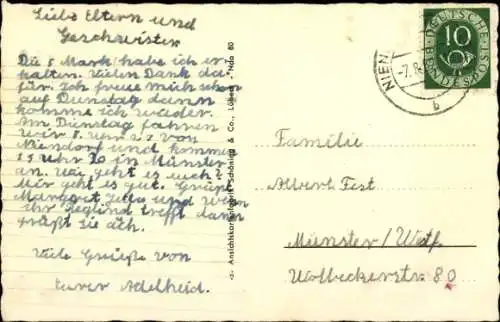 Liebe Eltern und
Geschwister
Die 5 Mark habe ich er-
halten. Vielen Dank da-
für. Ich freue mich schon
auf Dienstag dann
komme ich wieder.
Am Dienstag fahren
wir 8 Uhr von
Niendorf und kommen
15 Uhr 20 in Münster
an. Wie geht es euch?
Mir geht es gut. Grüßt
Margret und wenn
ihr trefft dann
grüßt Sie
Viele Grüße von
eurer Adelheid.
Ansichtskartenfabrik Schöning & Co., Lübeck
Nda 80
DEUTSCHE BUNDESPOST
10
NIEN
-7.8.
b
Familie
Albert Fest
Münster/Westf.
Wolbeckerstr. 80